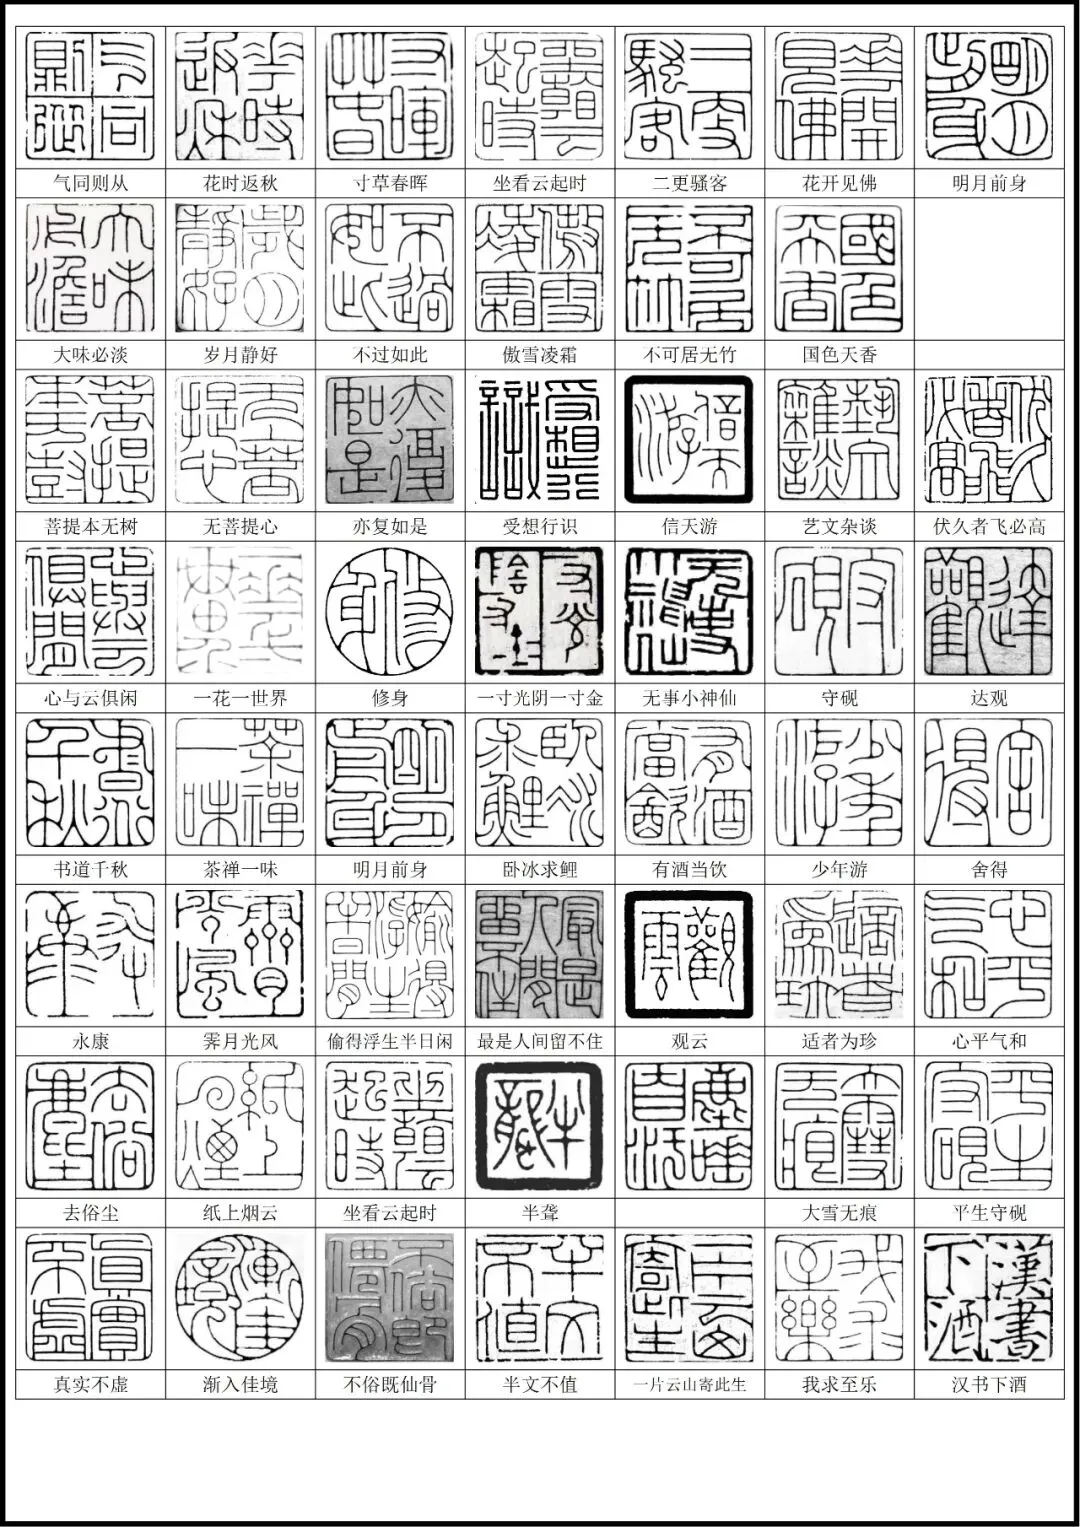 气同则从 花时返秋 寸草春晖 坐看云起时 二更骚客 花开见佛 明月前身
大味必淡 岁月静好 不过如此 傲雪凌霜 不可居无竹 国色天香
菩提本无树 无菩提心 亦复如是 受想行识 信天游 艺文杂谈 伏久者飞必高
心与云俱闲 一花一世界 修身 一寸光阴一寸金 无事小神仙 守砚 达观
书道千秋 茶禅一味 明月前身 卧冰求鲤 有酒当饮 少年游 舍得
永康 霁月光风 偷得浮生半日闲 最是人间留不住 观云 适者为珍 心平气和
去俗尘 纸上烟云 坐看云起时 半聋 大雪无痕 平生守砚
真实不虚 渐入佳境 不俗既仙骨 半文不值 一片云山寄此生 我求至乐 汉书下酒